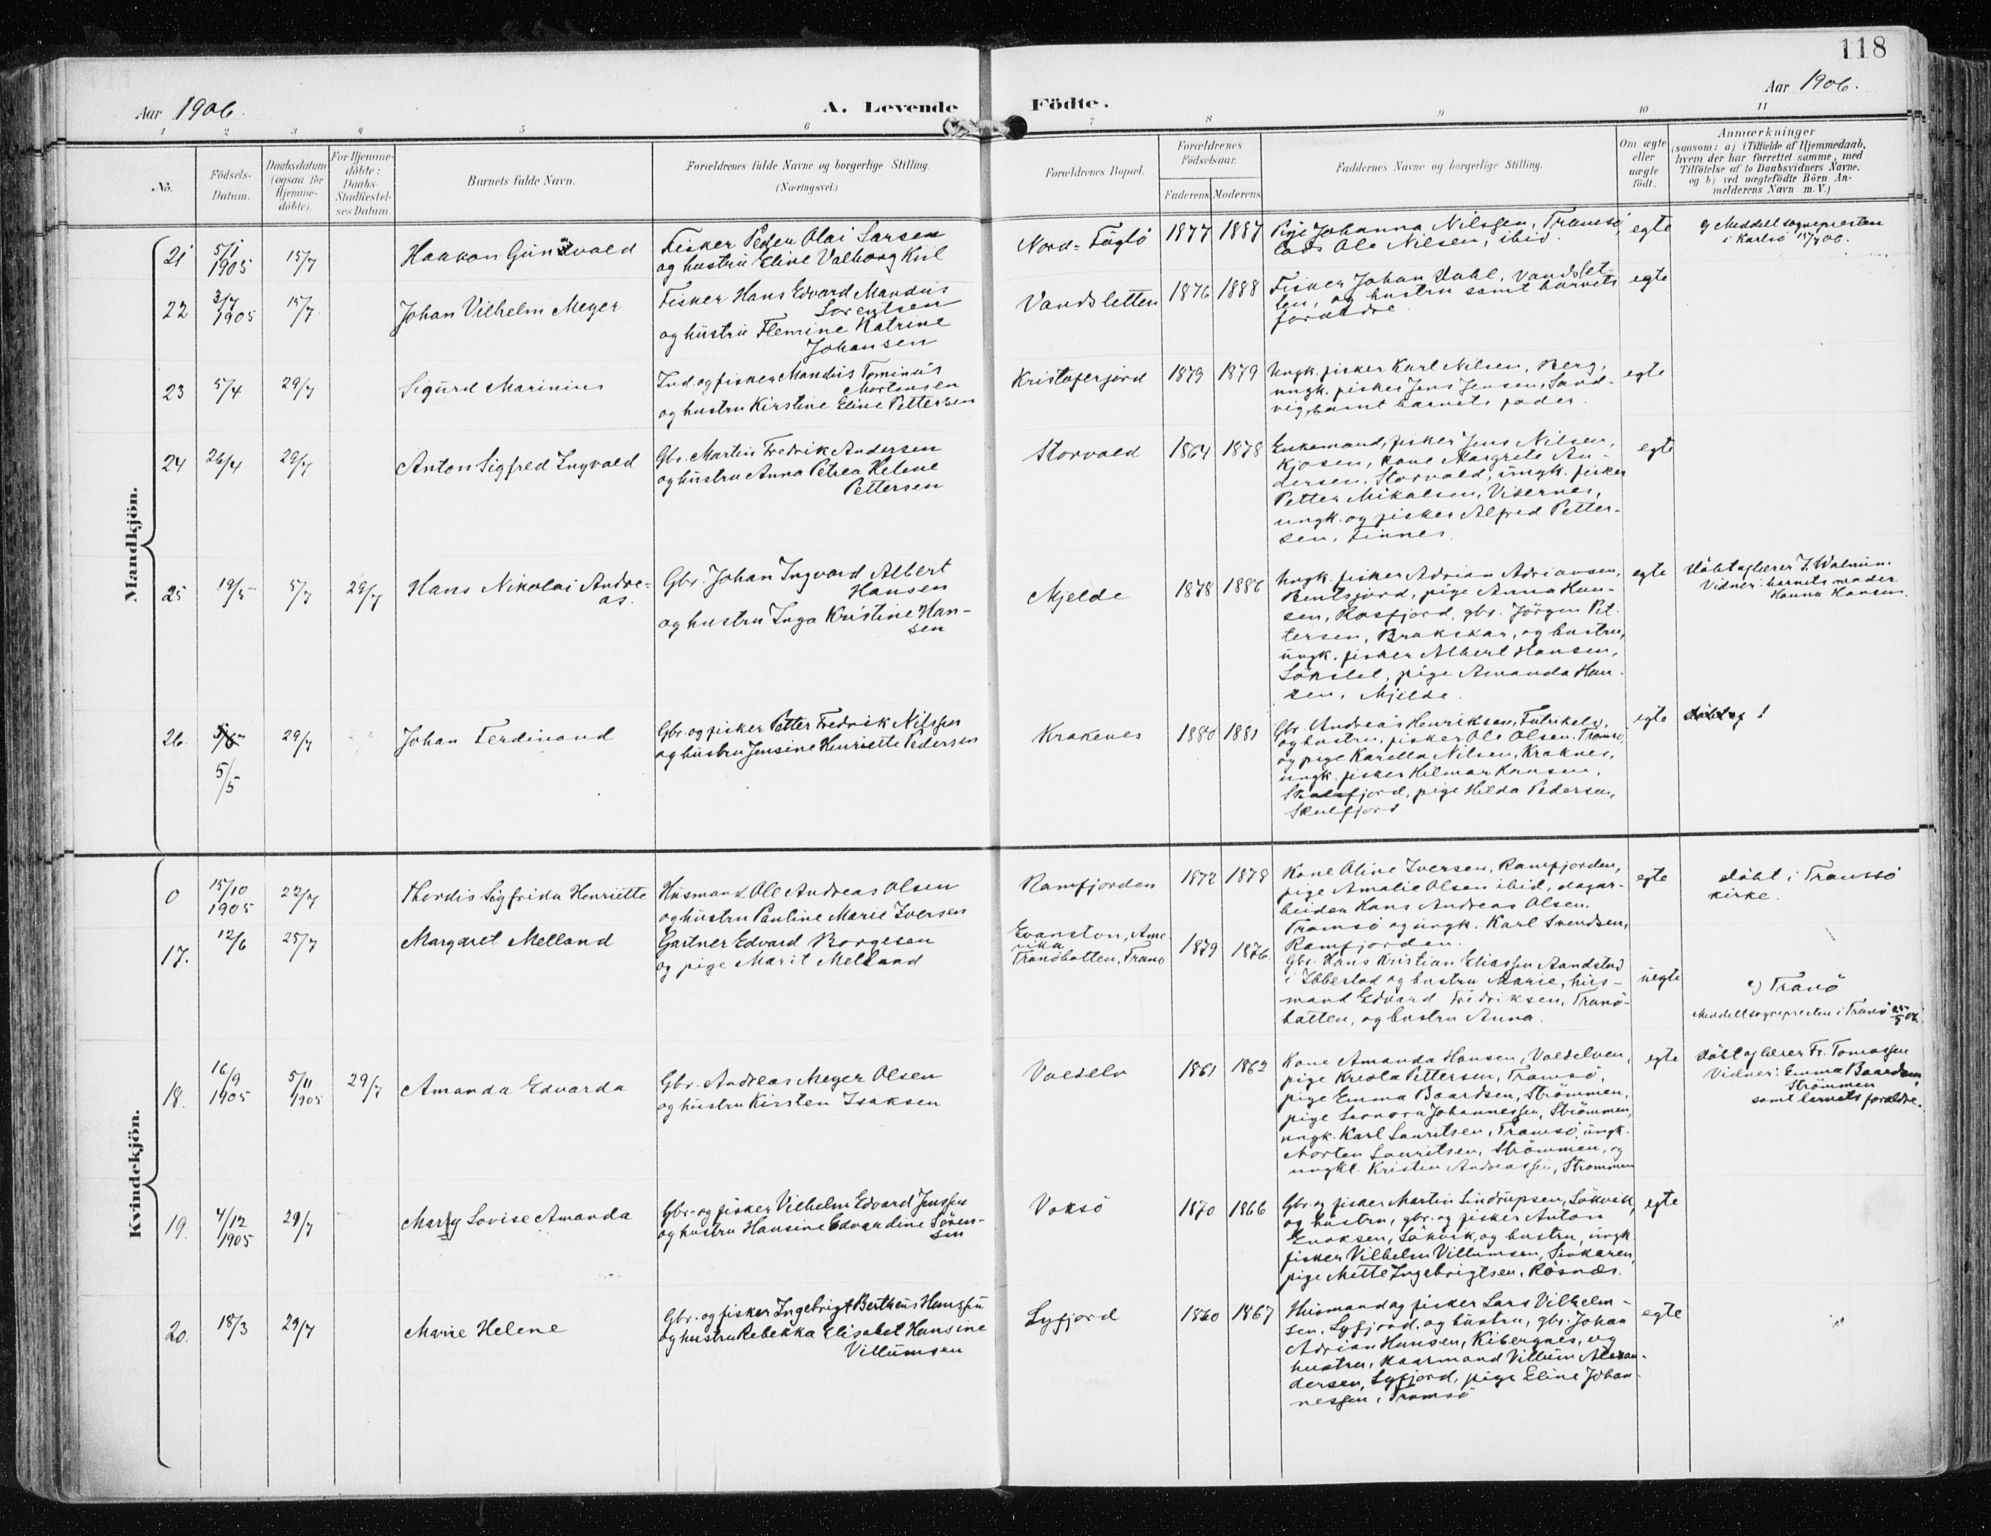 118
Aar 1906.
A. Levende Födte.
Aar 1906.
1 2 3 4 5 6 7 8 9 10 11
No.
Födsels-Datum.
Daabsdatum (ogsaa for Hjemme-döbte).
For Hjemme-döbte: Daabs-Stadfæstel-ses Datum.
Barnets fulde Navn.
Forældrenes fulde Navne og borgerlige Stilling.
(Næringsvei.)
Forældrenes Bopæl.
Forældrenes Födselsaar.
Faderens Moderens
Faddernes Navne og borgerlige Stilling.
Om ægte eller uægte födt.
Anmærkninger
(saasom: a) i Tilfælde af Hjemmedaab,
hvem der har forrettet samme, med
Tilföielse af to Daabsvidners Navne,
og b) ved uægtefödte Börn An-
melderens Navn m. V.)
Mandkjön.
21 5/1 1905 15/7 Haakon Gunvald
Fisker Peder Olai Larsen
og hustru Eline Valborg Kiil
Nord-Fuglö 1877 1887
Pige Johanna Nilsgen, Tromsö,
Ole Nilsen, ibid.
egte
Meddelt sognepresten
i Karlsö 15/7 06.
22 3/7 1905 15/7 Johan Vilhelm Meyer
Fisker Hans Edvard Mandus
Lorentsen
og hustru Flemine Katrine
Johansen
Vandsletten 1876 1888
Fisker Johan Dahl, Vandslet-
ten, og hustru samt barnets
foraldre
egte
23 5/4 29/7 Sigurd Marinius
Ind. og fisker Mandus Tominus
Mortensen
og hustru Kirstine Eline Pettersen
Kristoferjord 1879 1879
Ungk. fisker Karl Nilsen, Berg,
ungk. fisker Jens Jensen, Sand-
vig, samt barnets fader.
egte
24 26/4 29/7 Anton Sigfred Ingvald
Gbr. Martin Fredrik Andersen
og hustru Anna Petrea Helene
Pettersen
Storvold 1864 1878
Enkemand, fisker Jens Nilsen,
Kjosen, kone Margrete An-
dersen, Storvold, ungk. fisker
Petter Mikalsen, Visernes,
ungk. og fisker Alfred Petter-
sen, Finnes.
egte
25 19/5 5/7 29/7 Hans Nikolai Andre-
as.
Gbr. Johan Ingvard Albert
Hansen
og hustru Inga Kristine Han-
sen
Mjelde 1878 1886
Ungk. fisker Adrian Adriansen,
Bentsjord, pige Anna Han-
sen, Rosfjord, gbr. Jörgen Pet-
tersen, Brokskar, og hustru,
ungk. fisker Albert Hansen,
pige Amanda Han-
sen, Mjelde.
egte
döbt af lærer J. Walnum.
Vidner: barnets moder
Hanna Hansen.
26. 5/5 29/7 Johan Ferdinand
Gbr. og fisker Petter Fredrik Nilssen
og hustru Jensine Henriette Pedersen
Krakenes 1880 1881
Gbr. Andreas Henriksen, Futrikelv,
og hustru, fisker Ole Olsen, Tromsö,
og pige Karella Nilsen, Kraknes,
ungk. fisker Hilmar Hansen,
Skulsfjord, pige Hilda Pedersen,
Skulfjord
egte
Kvindekjön.
0 15/10 1905 22/7 Thordis Sigfrida Henriette
Husmand Ole Andreas Olsen
og hustru Pauline Marie Iversen
Ramfjorden 1872 1878
Kone Oline Iversen, Ramfjorden,
pige Amalie Olsen ibid, dagar-
beider Hans Andreas Olsen,
Tromsö og ungk. Karl Svendsen,
Ramfjorden.
egte
döbt i Tromsö
kirke.
17. 12/6 25/7 Margaret Melland
Gartner Edvard Borgesen
og pige Marit Melland
Evanston, Ame-
rika
Tranöbotten, Tranö
1879 1876
Gbr. Hans Kristian Eliassen Aandstad
i Ibbestad og hustru Marie, hus-
mand Edvard Fredriksen, Tranö-
botten, og hustru Anna.
uegte
Tranö
Meddelt sognepresten i Tranö 25/7 06.
18. 16/9 1905 5/11 1905 29/7 Amanda Edvarda
Gbr. Andreas Meyer Olsen
og hustru Kirsten Isaksen
Voldelv 1861 1862
Kone Amanda Hansen, Voldelven,
pige Kreola Pettersen, Tromsö,
pige Emma Baardsen, Strömmen,
pige Leonora Johannessen, Strömmen,
ungk. Karl Lauritsen, Tromsö, ungk.
Morten Lauritsen, Strömmen, og
ungkl. Kristin Andreassen, Strommen
egte
döbt af lærer Fr. Tomassen
Vidner: Emma Baardsen,
Strömmen
samt barnets foraldre.
19. 4/12 1905 29/7 Marry Lovise Amanda
Gbr. og fisker Vilhelm Edvard Jenssen
og hustru Hansine Edvardine Sören-
sen
Voksö 1870 1866
Gbr. og fisker Martin Lindrupsen, Lökvik,
og hustru, gbr. og fisker Anton
Enoksen, Lökvik, og hustru, ungk.
fisker Vilhelm Villumsen,
pige Mette Ingebrigtsen, Rösnæs.
egte
20. 18/3 29/7 Marie Helene
Gbr. og fisker Ingebrigt Bertheus Hanssen
og hustru Rebekka Elisabet Hansine
Villumsen
Lyfjord 1860 1867
Husmand og fisker Lars Vilhelm-
sen, Lyfjord, og hustru, gbr. Johan
Adrian Hansen, Kibergnes, og
hustru, kaarmand Villum Alexan-
dersen, Lyfjord, pige Eline Johan-
nessen, Tromsö
egte